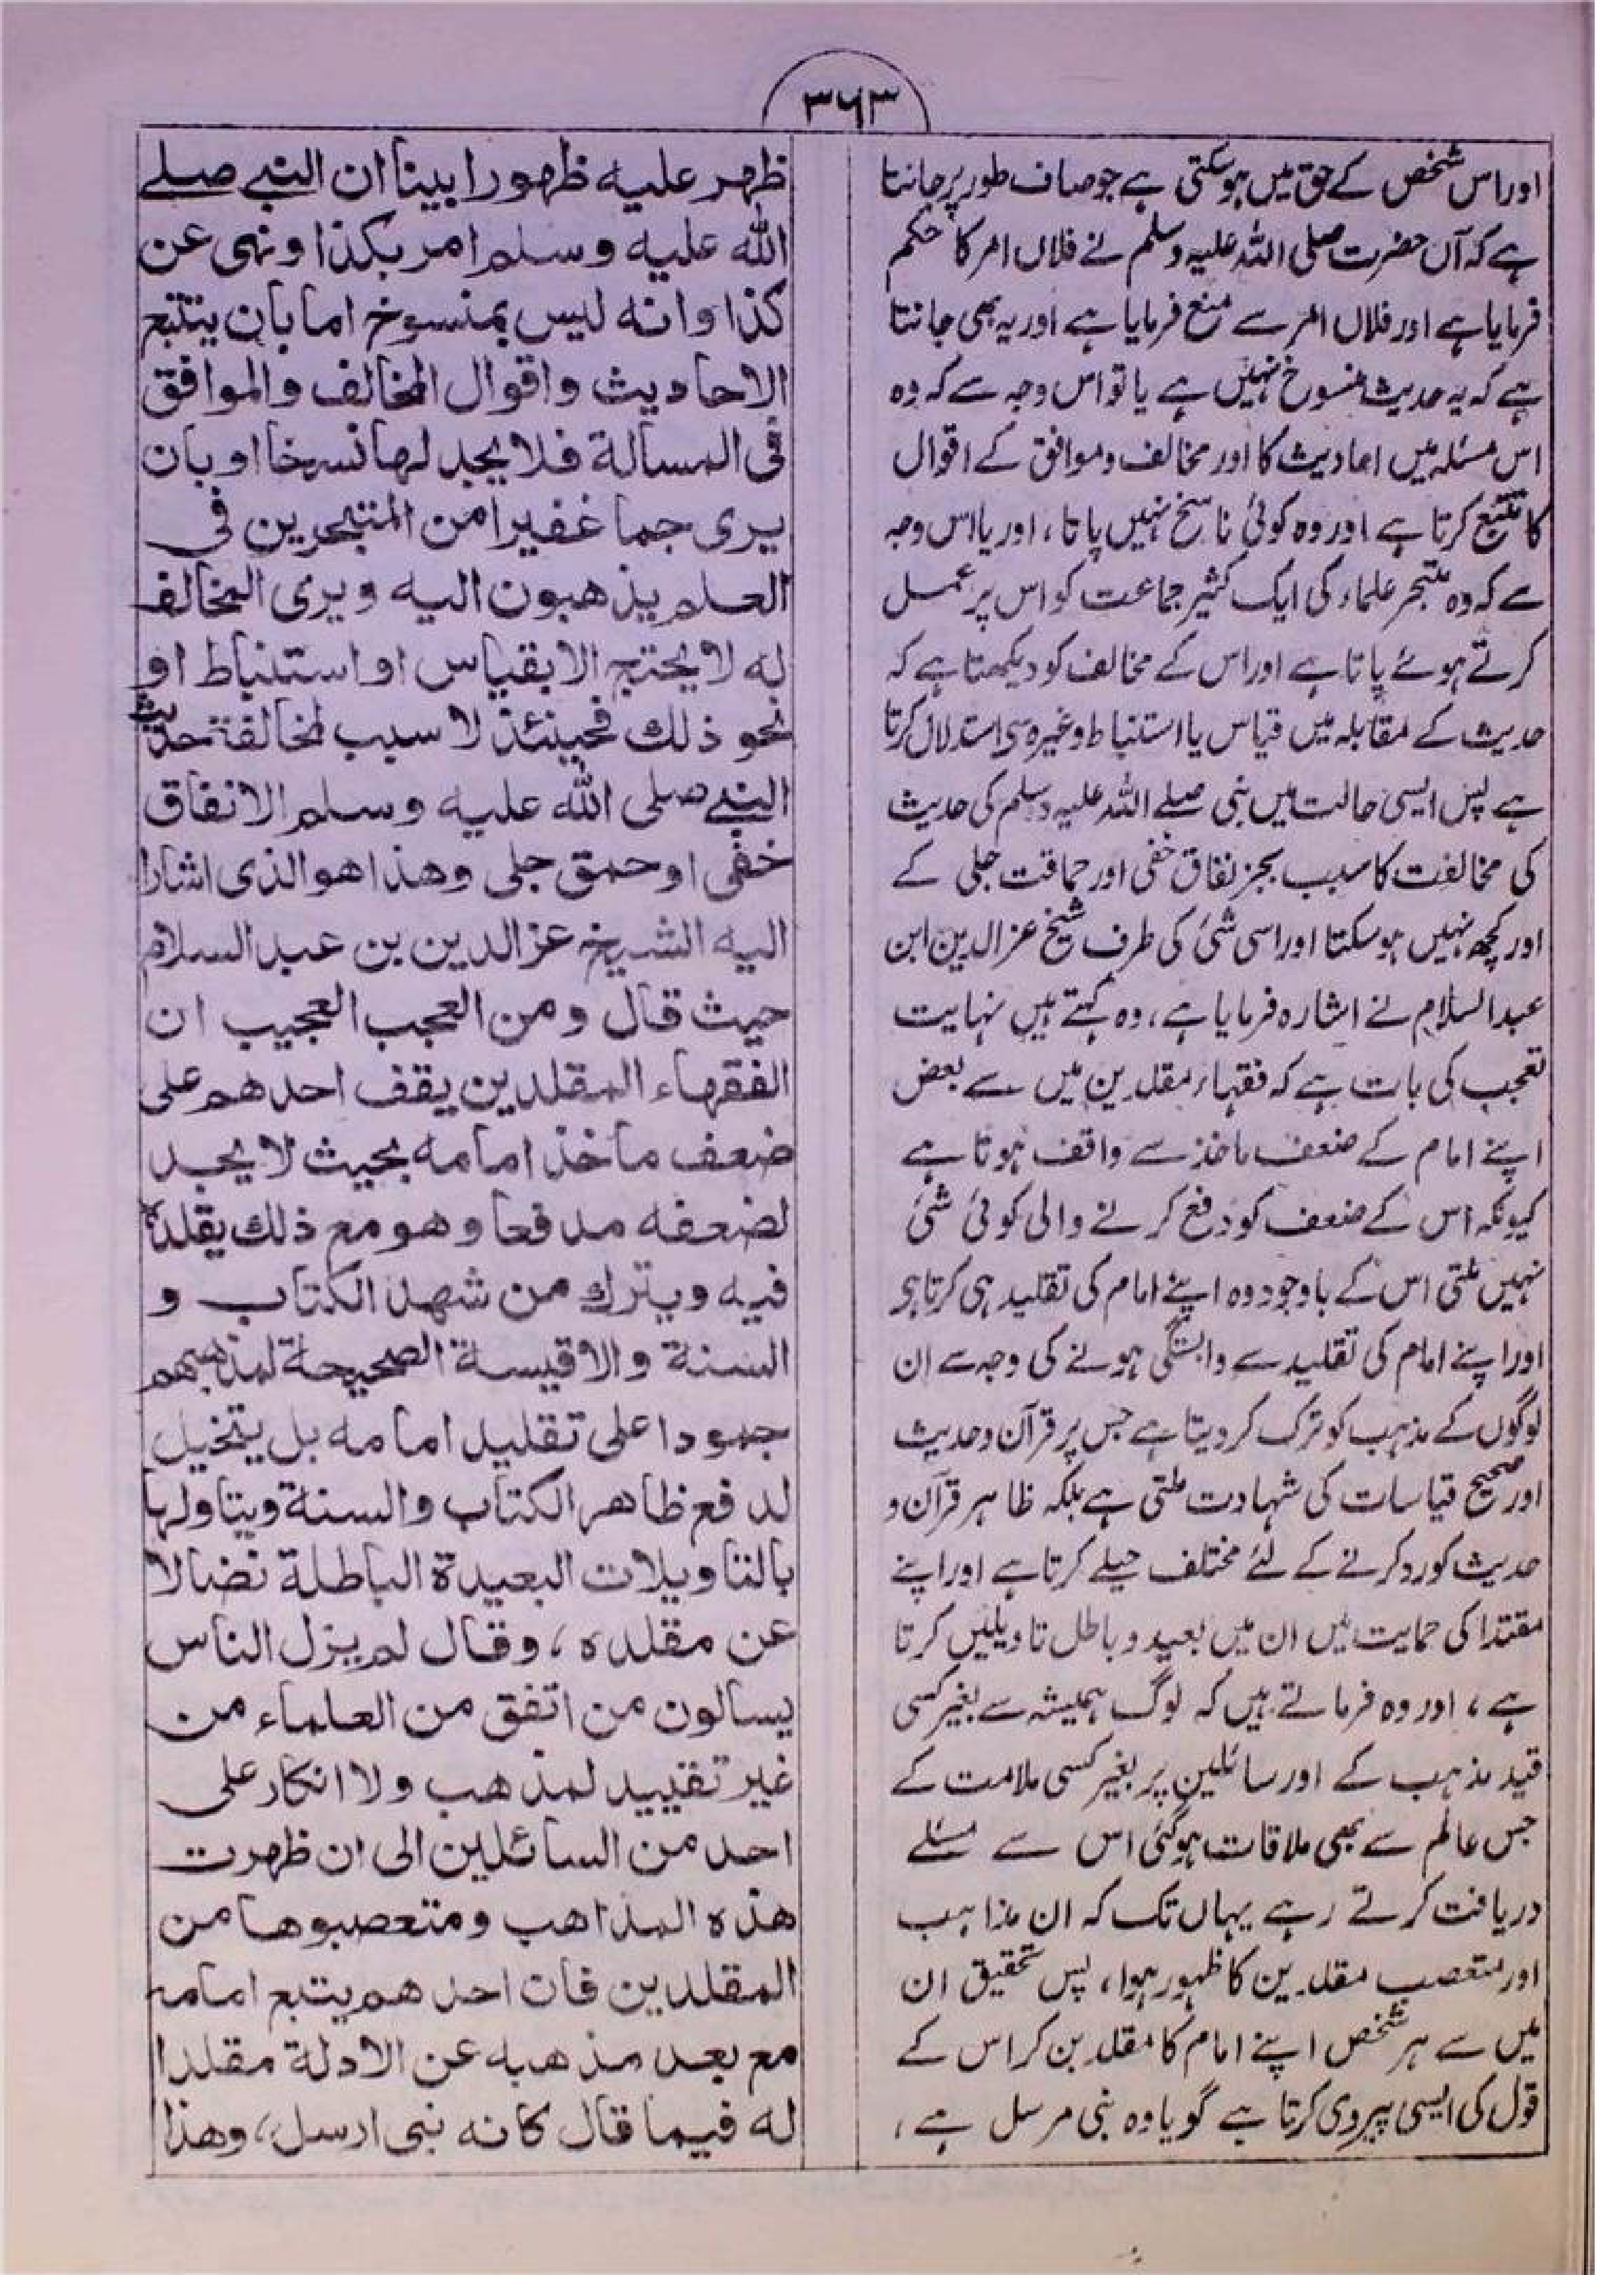 ۳۶۳
اور اس شخص کے حق میں ہو سکتی ہے جو صاف طور پر جانتا
ہے کہ آں حضرت صلی اللہ علیہ وسلم نے فلاں امر کا حکم
فرمایا ہے اور فلاں امر سے منع فرمایا ہے اور یہ بھی جانتا
ہے کہ یہ حدیث منسوخ نہیں ہے یا تو اس وجہ سے کہ وہ
اس مسئلہ میں احادیث کا اور مخالف و موافق کے اقوال
کا تتبع کرتا ہے اور وہ کوئی ناسخ نہیں پاتا، اور یا اس وجہ
سے کہ وہ متبحر علماء کی ایک کثیر جماعت کو اس پر عمل
کرتے ہوئے پاتا ہے اور اس کے مخالف کو دیکھتا ہے کہ
حدیث کے مقابلہ میں قیاس یا استنباط وغیرہ سی استدلال کرتا
ہے پس ایسی حالت میں نبی صلے اللہ علیہ وسلم کی حدیث
کی مخالفت کا سبب بجز نفاق خفی اور حماقت جلی کے
اور کچھ نہیں ہو سکتا اور اسی شئ کی طرف شیخ عز الدین ابن
عبد السلام نے اشارہ فرمایا ہے، وہ کہتے ہیں نہایت
تعجب کی بات ہے کہ فقہاء مقلدین میں سے بعض
اپنے امام کے ضعف ماخذ سے واقف ہوتا ہے
کیونکہ اس کے ضعف کو دفع کرنے والی کوئی شئ
نہیں ملتی اس کے باوجود وہ اپنے امام کی تقلید ہی کرتا ہو
اور اپنے امام کی تقلید سے وابستگی ہونے کی وجہ سے ان
لوگوں کے مذہب کو ترک کر دیتا ہے جس پر قرآن و حدیث
اور صحیح قیاسات کی شہادت ملتی ہے بلکہ ظاہر قرآن و
حدیث کو رد کرنے کے لئے مختلف حیلے کرتا ہے اور اپنے
مقتدا کی حمایت میں ان میں بعید و باطل تاویلیں کرتا
ہے، اور وہ فرماتے ہیں کہ لوگ ہمیشہ سے بغیر کسی
قید مذہب کے اور سائلین پر بغیر کسی ملامت کے
جس عالم سے بھی ملاقات ہو گئی اس سے مسئلے
دریافت کرتے رہے یہاں تک کہ ان مذاہب
اور متعصب مقلدین کا ظہور ہوا، پس تحقیق ان
میں سے ہر شخص اپنے امام کا مقلد بن کر اس کے
قول کی ایسی پیروی کرتا ہے گویا وہ نبی مرسل ہے،
ظهر عليه ظهورا بينا ان النبی صلے
الله عليه وسلم امر بكذا ونهى عن
كذا وانه ليس بمنسوخ اما بان يتتبع
الاحاديث واقوال المخالف والموافق
فی المسالة فلا يجد لها نسخا او بان
يرى جما غفيرا من المتبحرين فى
العلم يذهبون اليه ويرى المخالف
له لا يحتج الا بقياس او استنباط او
نحو ذلك فحينئذ لا سبب لمخالفة حديث
النبی صلى الله عليه وسلم الا نفاق
خفى او حمق جلى وهذا هو الذى اشار
اليه الشيخ عز الدين بن عبد السلام
حيث قال ومن العجب العجيب ان
الفقهاء المقلدين يقف احدهم على
ضعف ماخذ امامه بحيث لا يجد
لضعفه مدفعا وهو مع ذلك يقلده
فيه ويترك من شهد الكتاب و
السنة والاقيسة الصحيحة لمذهبهم
جمودا على تقليد امامه بل يتخيل
لدفع ظاهر الكتاب والسنة ويتاولها
بالتاويلات البعيدة الباطلة نضالا
عن مقلده، وقال لم يزل الناس
يسالون من اتفق من العلماء من
غير تقييد لمذهب ولا انكار على
احد من السائلين الى ان ظهرت
هذه المذاهب ومتعصبوها من
المقلدين فان احدهم يتبع امامه
مع بعد مذهبه عن الادلة مقلدا
له فيما قال كانه نبى ارسل، وهذا